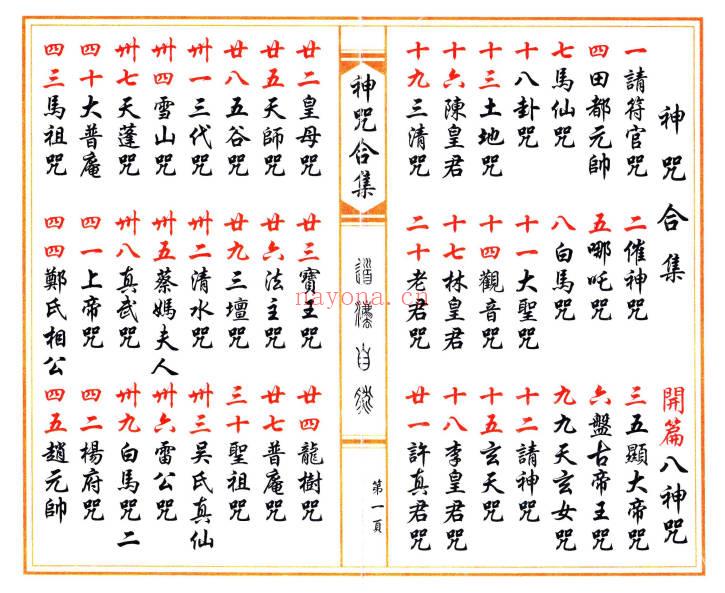 神咒合集 開篇八神咒
一請符官咒 二催神咒 三五顯大帝咒
四田都元帥 五哪吒咒 六盤古帝王咒
七馬仙咒 八白馬咒 九九天玄女咒
十八卦咒 十一大聖咒 十二請神咒
十三土地咒 十四觀音咒 十五玄天咒
十六陳皇君 十七林皇君 十八李皇君咒
十九三清咒 二十老君咒 廿一許真君咒
神咒合集
道灋自然
第一頁
廿二皇母咒 廿三寶王咒 廿四龍樹咒
廿五天師咒 廿六法主咒 廿七普庵咒
廿八五谷咒 廿九三壇咒 三十聖祖咒
卅一三代咒 卅二清水咒 卅三吴氏真仙
卅四雪山咒 卅五蔡媽夫人 卅六雷公咒
卅七天蓬咒 卅八真武咒 卅九白馬咒二
四十大普庵 四一上帝咒 四二楊府咒
四三馬祖咒 四四鄭氏相公 四五趙元帥
nayona.cn